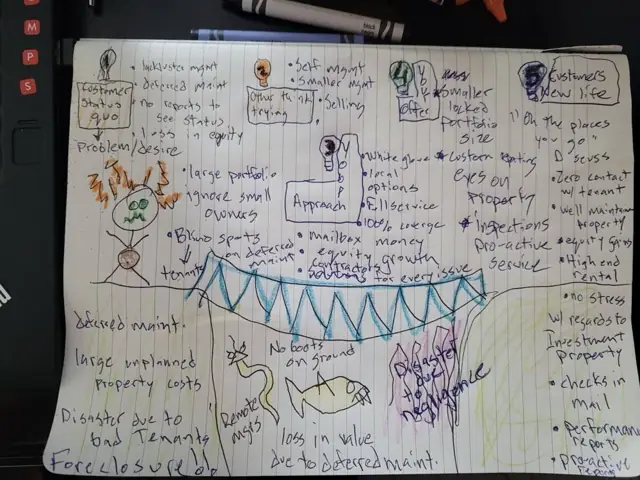 M
P
S
1
Customer
Status
quo
Problem/desire
• lackluster mgmt
• deferred maint
• no reports to
see status
• loss in equity
2
Other things
trying
• Self mgmt
• Smaller mgmt
• Selling
4
Offer
Smaller
locked
portfolio
size
* custom
eyes on
property
* Inspections
Pro-active
service
5
Customers
New life
"Oh the places
you go"
• Zero contact
w/ tenant
• well maintain
property
• equity gains
• High end
rental
• no stress
w/ regards to
Investment
Property
• checks in
mail
• performance
reports
• pro-active
3
Approach
• white glove
• local
options
• Full service
• 100% coverage
• mailbox money
• equity growth
contractors
solutions for every issue
• large portfolio
ignore small
owners
• Blind spots
on deferred
maint
tenants
deferred maint.
large unplanned
property costs
Disaster due to
bad Tenants
Foreclosure
No boots
on ground
Remote
mgrs
Disaster
due
to
negligence
loss in value
due to deferred maint.